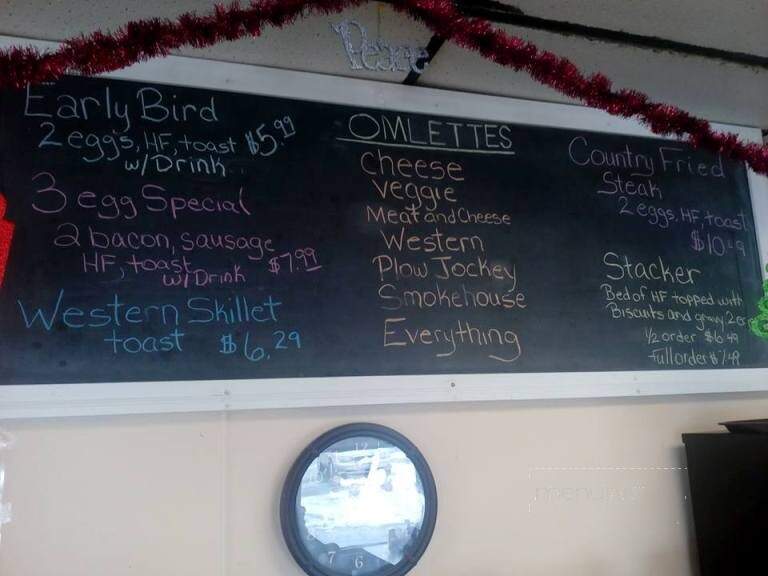 Peace
Early Bird
2 eggs, HF, toast $5.99
w/Drink
3 egg Special
2 bacon, sausage
HF, toast $7.99
w/Drink
Western Skillet
toast $6.29
OMLETTES
cheese
Veggie
Meat and Cheese
Western
Plow Jockey
Smokehouse
Everything
Country Fried
Steak
2 eggs, HF, toast
Stacker
Bed of HF topped with
Biscuits and gravy 2 eggs
1/2 order $6.49
Full order
12
7 6
menu